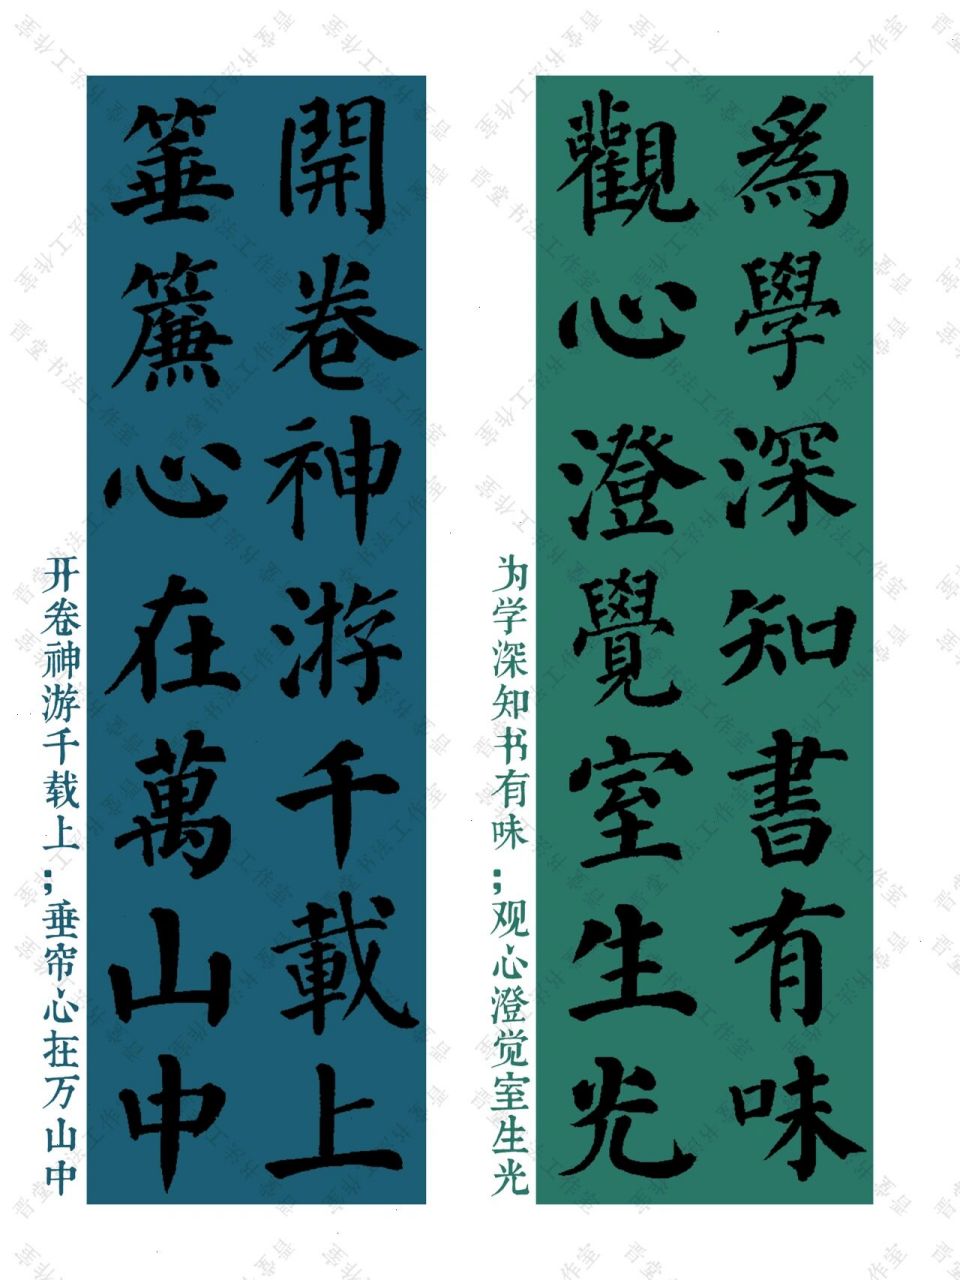 為學深知書有味
觀心澄覺室生光
为学深知书有味;观心澄觉室生光
開卷神游千載上
箠簾心在萬山中
开卷神游千载上;垂帘心在万山中